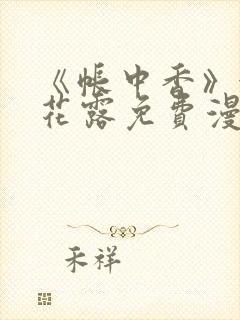 《帐中香》
花露免费漫
禾祥